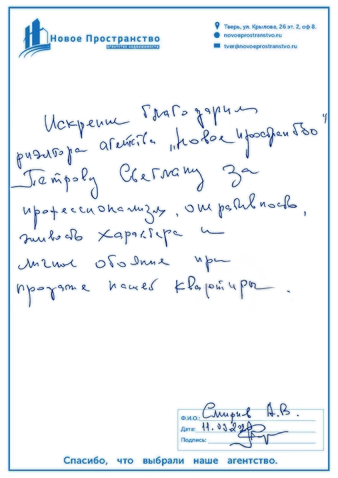 Новое Пространство
агентство недвижимости
Тверь, ул. Крылова, 26 эт. 2, оф 8.
novoeprostranstvo.ru
tver@novoeprostranstvo.ru
Искренне благодарим
риэлтора агетства „Новое пространство"
Петрову Светлану за
профессионализм, оперативность,
живость характера и
личное обаяние при
продаже нашей квартиры.
Ф.И.О.: Смирнов А.В.
Дата: 11.03.
Подпись:
Спасибо, что выбрали наше агентство.